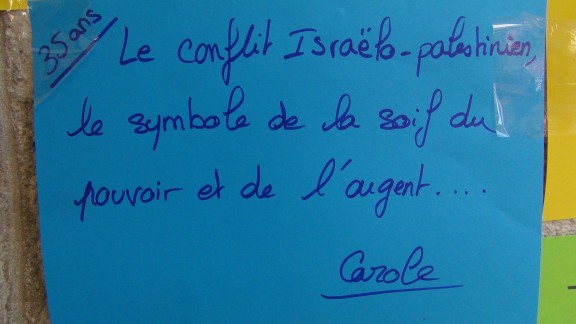 35 ans
Le conflit Israëlo-palestinien,
le symbole de la soif du
pouvoir et de l'argent....
Carole